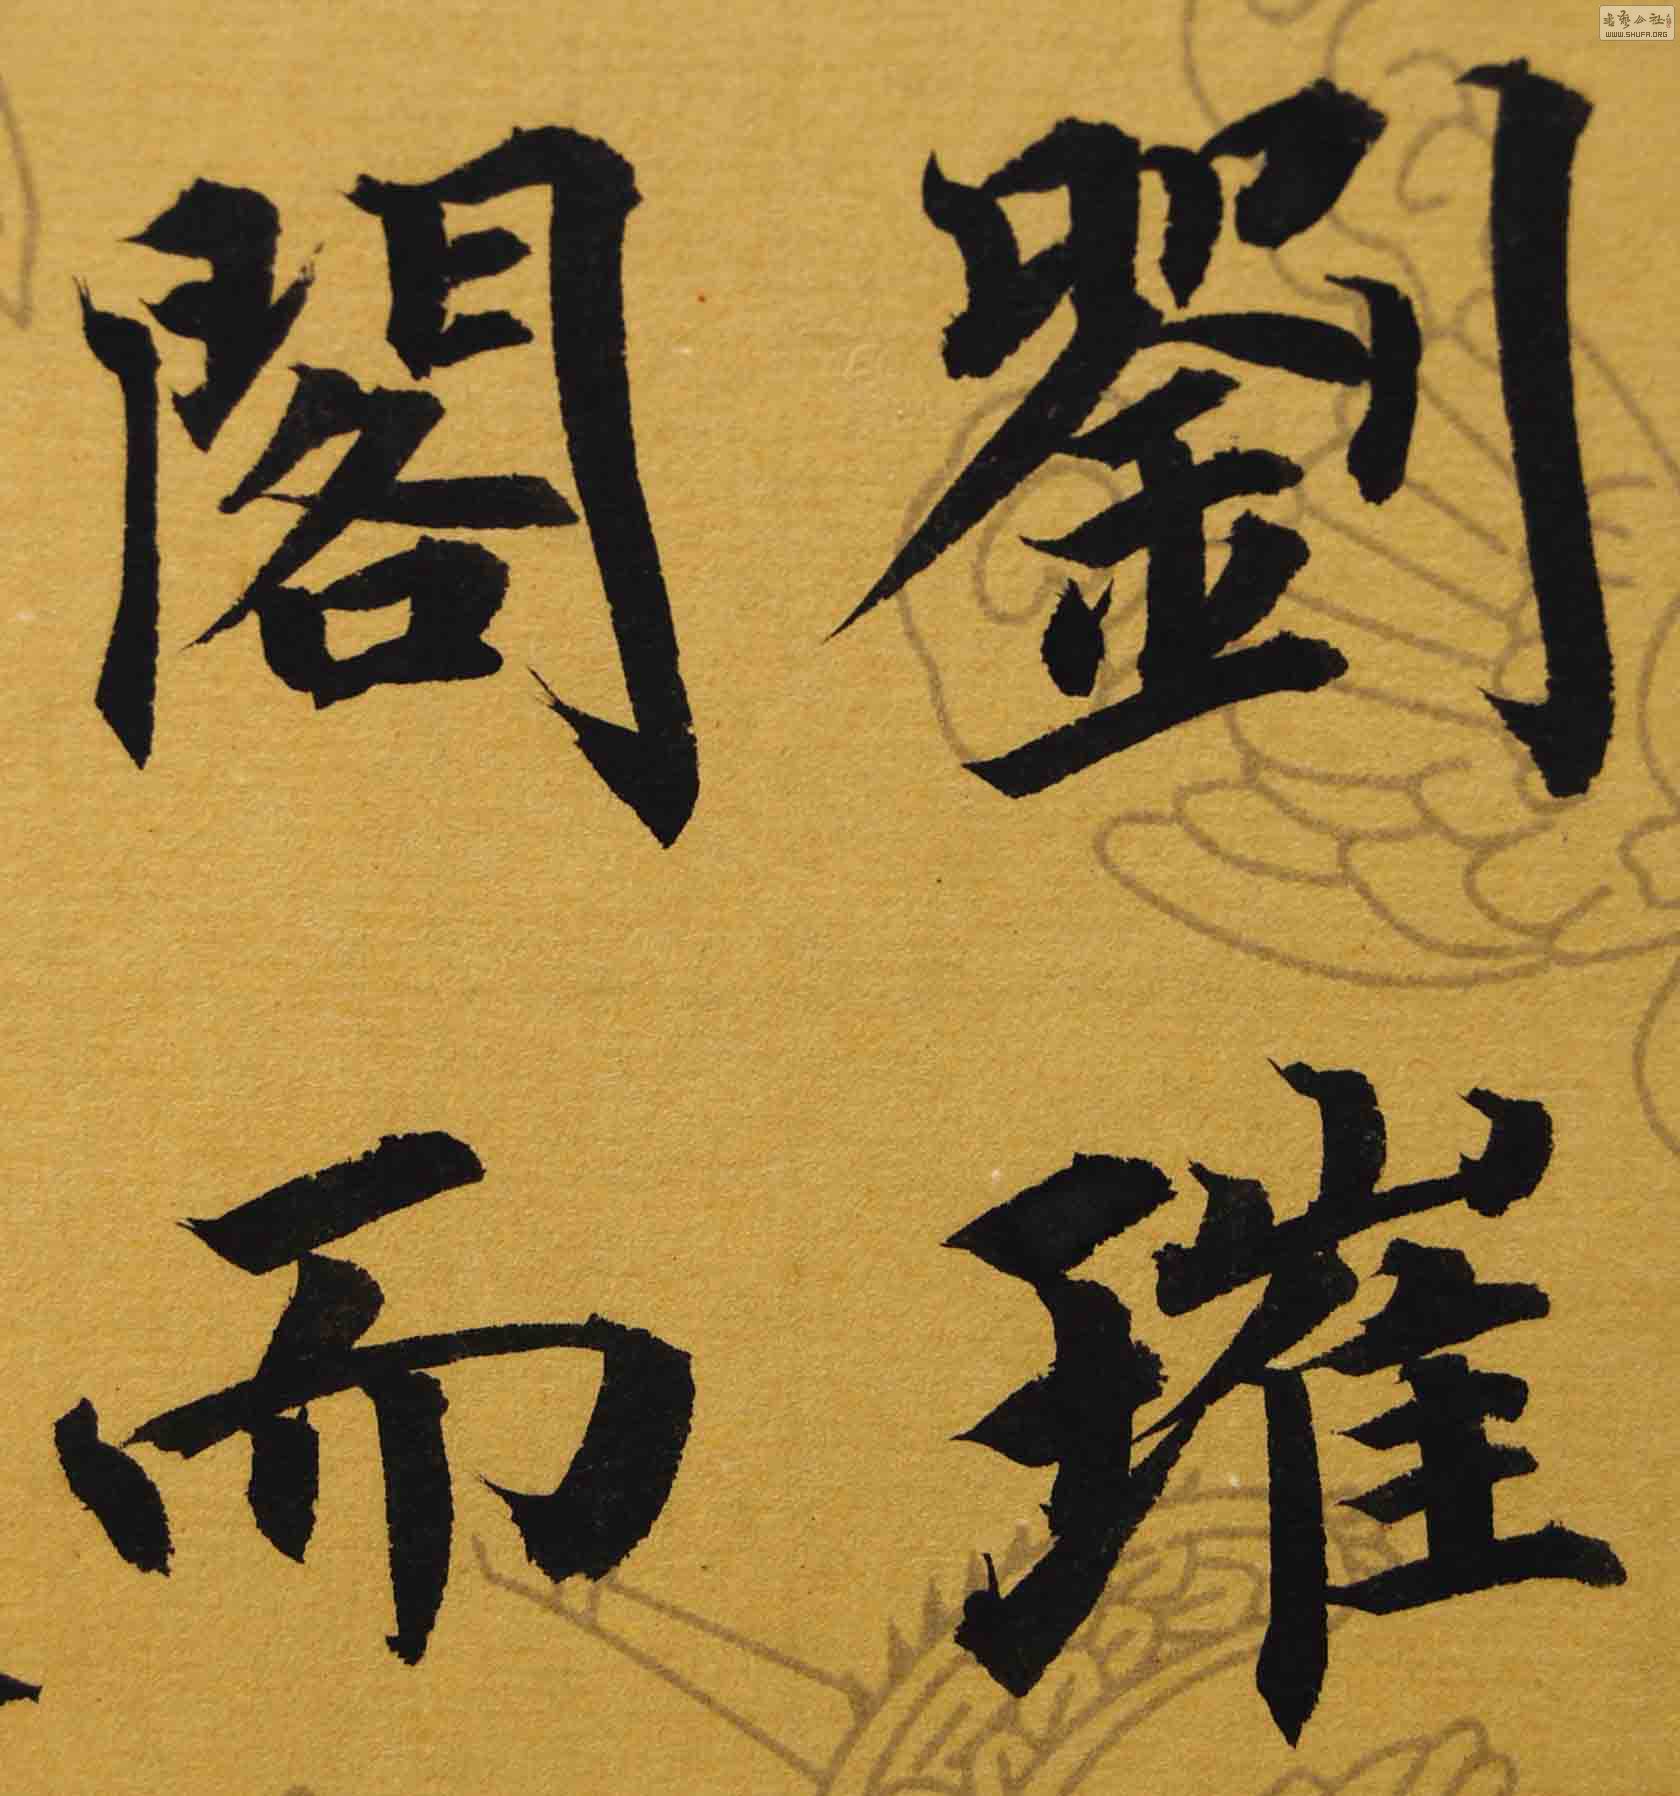 劉璀
閣而
書藝公社
WWW.SHUFA.ORG